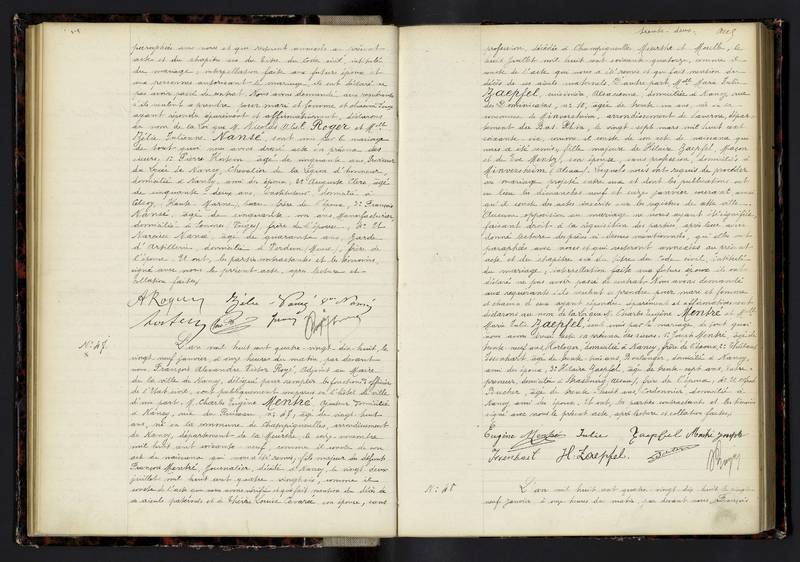 paraphées avec nous et qui resteront annexées au présent
acte et du chapitre six du titre du Code civil, intitulé
du mariage, interpellation faite aux futurs époux et
aux personnes autorisant le mariage, ils ont déclaré ne
pas avoir passé de contrat. Nous avons demandé aux requérants
s'ils veulent se prendre pour mari et femme et chacun d'eux
ayant répondu séparément et affirmativement, déclarons
au nom de la loi que M. Nicolas Abel Roger et Melle
Zélie Julienne Nansé, sont unis par le mariage
de tout quoi nous avons dressé acte en présence des
sieurs, 1° Pierre agé de cinquante ans
de Nancy, Chevalier de la légion d'honneur,
domicilié à Nancy, ami de l'époux, 2° Auguste Clerc, agé
de cinquante deux ans, Instituteur, domicilié à
Haute Marne, beau-frère de l'époux, 3° François
Nansé, agé de cinquante un ans, Manufacturier,
domicilié à Vosges, frère de l'épouse, 4° Et
Narcisse Nansé, agé de quarante ans, Garde
d'Artillerie, domicilié à Verdun, Meuse, frère de
l'épouse. Et ont, les parties contractantes et les témoins,
signé avec nous le présent acte, après lecture et
collation faites
A Roger Zélie Nansé
N: 47.
L'an mil huit cent quatre-vingt-dix-huit, le
vingt neuf janvier, à onze heures du matin, par devant
nous François Alexandre Victor Adjoint au Maire
de la ville de Nancy, délégué pour remplir les fonctions d'officier
de l'état civil, sont publiquement comparus en l'hôtel de ville
d'une part M. Charles Eugène Mentré, domicilié
à Nancy, rue du n: 48, agé de vingt huit
ans, né en la commune de Champigneulles, arrondissement
de Nancy, département de la Meurthe, le onze novembre
mil huit cent soixante neuf, comme il conste de son
acte de naissance qui nous a été remis, fils majeur de défunt
François Mentré, Journalier, décédé à Nancy, le vingt deux
juillet mil huit cent quatre-vingt six, comme il
conste de l'acte que nous avons vérifié et qui fait mention du décès de
ses aïeuls paternels et de Louise son épouse, sans
trente deux
profession, décédée à Champigneulles Meurthe et Moselle, le
onze Juillet mil huit cent soixante quatorze, comme il
conste de l'acte qui nous a été remis et qui fait mention du
décès de ses aïeuls maternels. D'autre part Melle Marie Julie
Zaepfel, cuisinière, Alsacienne, domiciliée à Nancy, rue
des Dominicains, n: 10, agée de trente un ans, née en la
commune de Minversheim, arrondissement de Saverne, dépar-
tement du Bas Rhin, le vingt sept mars mil huit cent
soixante six, comme il conste de son acte de naissance qui
nous a été remis, fille majeure de Hilaire Zaepfel, Maçon
et de Eve Mentz, son épouse, sans profession, domiciliés à
Minversheim (Alsace). Lesquels nous ont requis de procéder
au mariage projeté entre eux et dont les publications ont
eu lieu les dimanches neuf et seize janvier courant, ainsi
qu'il conste des actes inscrits sur les registres de cette ville.
Aucune opposition au mariage ne nous ayant été signifiée,
faisant droit à la réquisition des parties, après leur avoir
donné lecture des pièces ci-dessus mentionnées, qui ont été
paraphées avec nous et qui resteront annexées au présent
acte et du chapitre six du titre du Code civil, intitulé
du mariage, interpellation faite aux futurs époux, ils ont
déclaré ne pas avoir passé de contrat. Nous avons demandé
aux requérants s'ils veulent se prendre pour mari et femme
et chacun d'eux ayant répondu séparément et affirmativement
déclarons au nom de la loi que M. Charles Eugène Mentré et Melle
Marie Julie Zaepfel, sont unis par le mariage de tout quoi
nous avons dressé acte en présence des sieurs, 1° Joseph Mentré, agé de
trente neuf ans, Horloger, domicilié à Nancy, frère de l'époux, 2°
agé de trente huit ans, Boulanger, domicilié à Nancy,
ami de l'époux, 3° Hilaire Zaepfel, agé de trente sept ans, entre-
preneur, domicilié à Strasbourg, Alsace, frère de l'épouse, 4° Et
agé de trente huit ans, Cordonnier, domicilié à
Nancy, ami de l'époux, Et ont, les parties contractantes et les témoins
signé avec nous le présent acte, après lecture et collation faites,
Eugène Mentré Julie Zaepfel Mentré Joseph
H. Zaepfel
N: 48
L'an mil huit cent quatre-vingt-dix-huit, le vingt
neuf janvier à onze heures du matin, par devant nous François